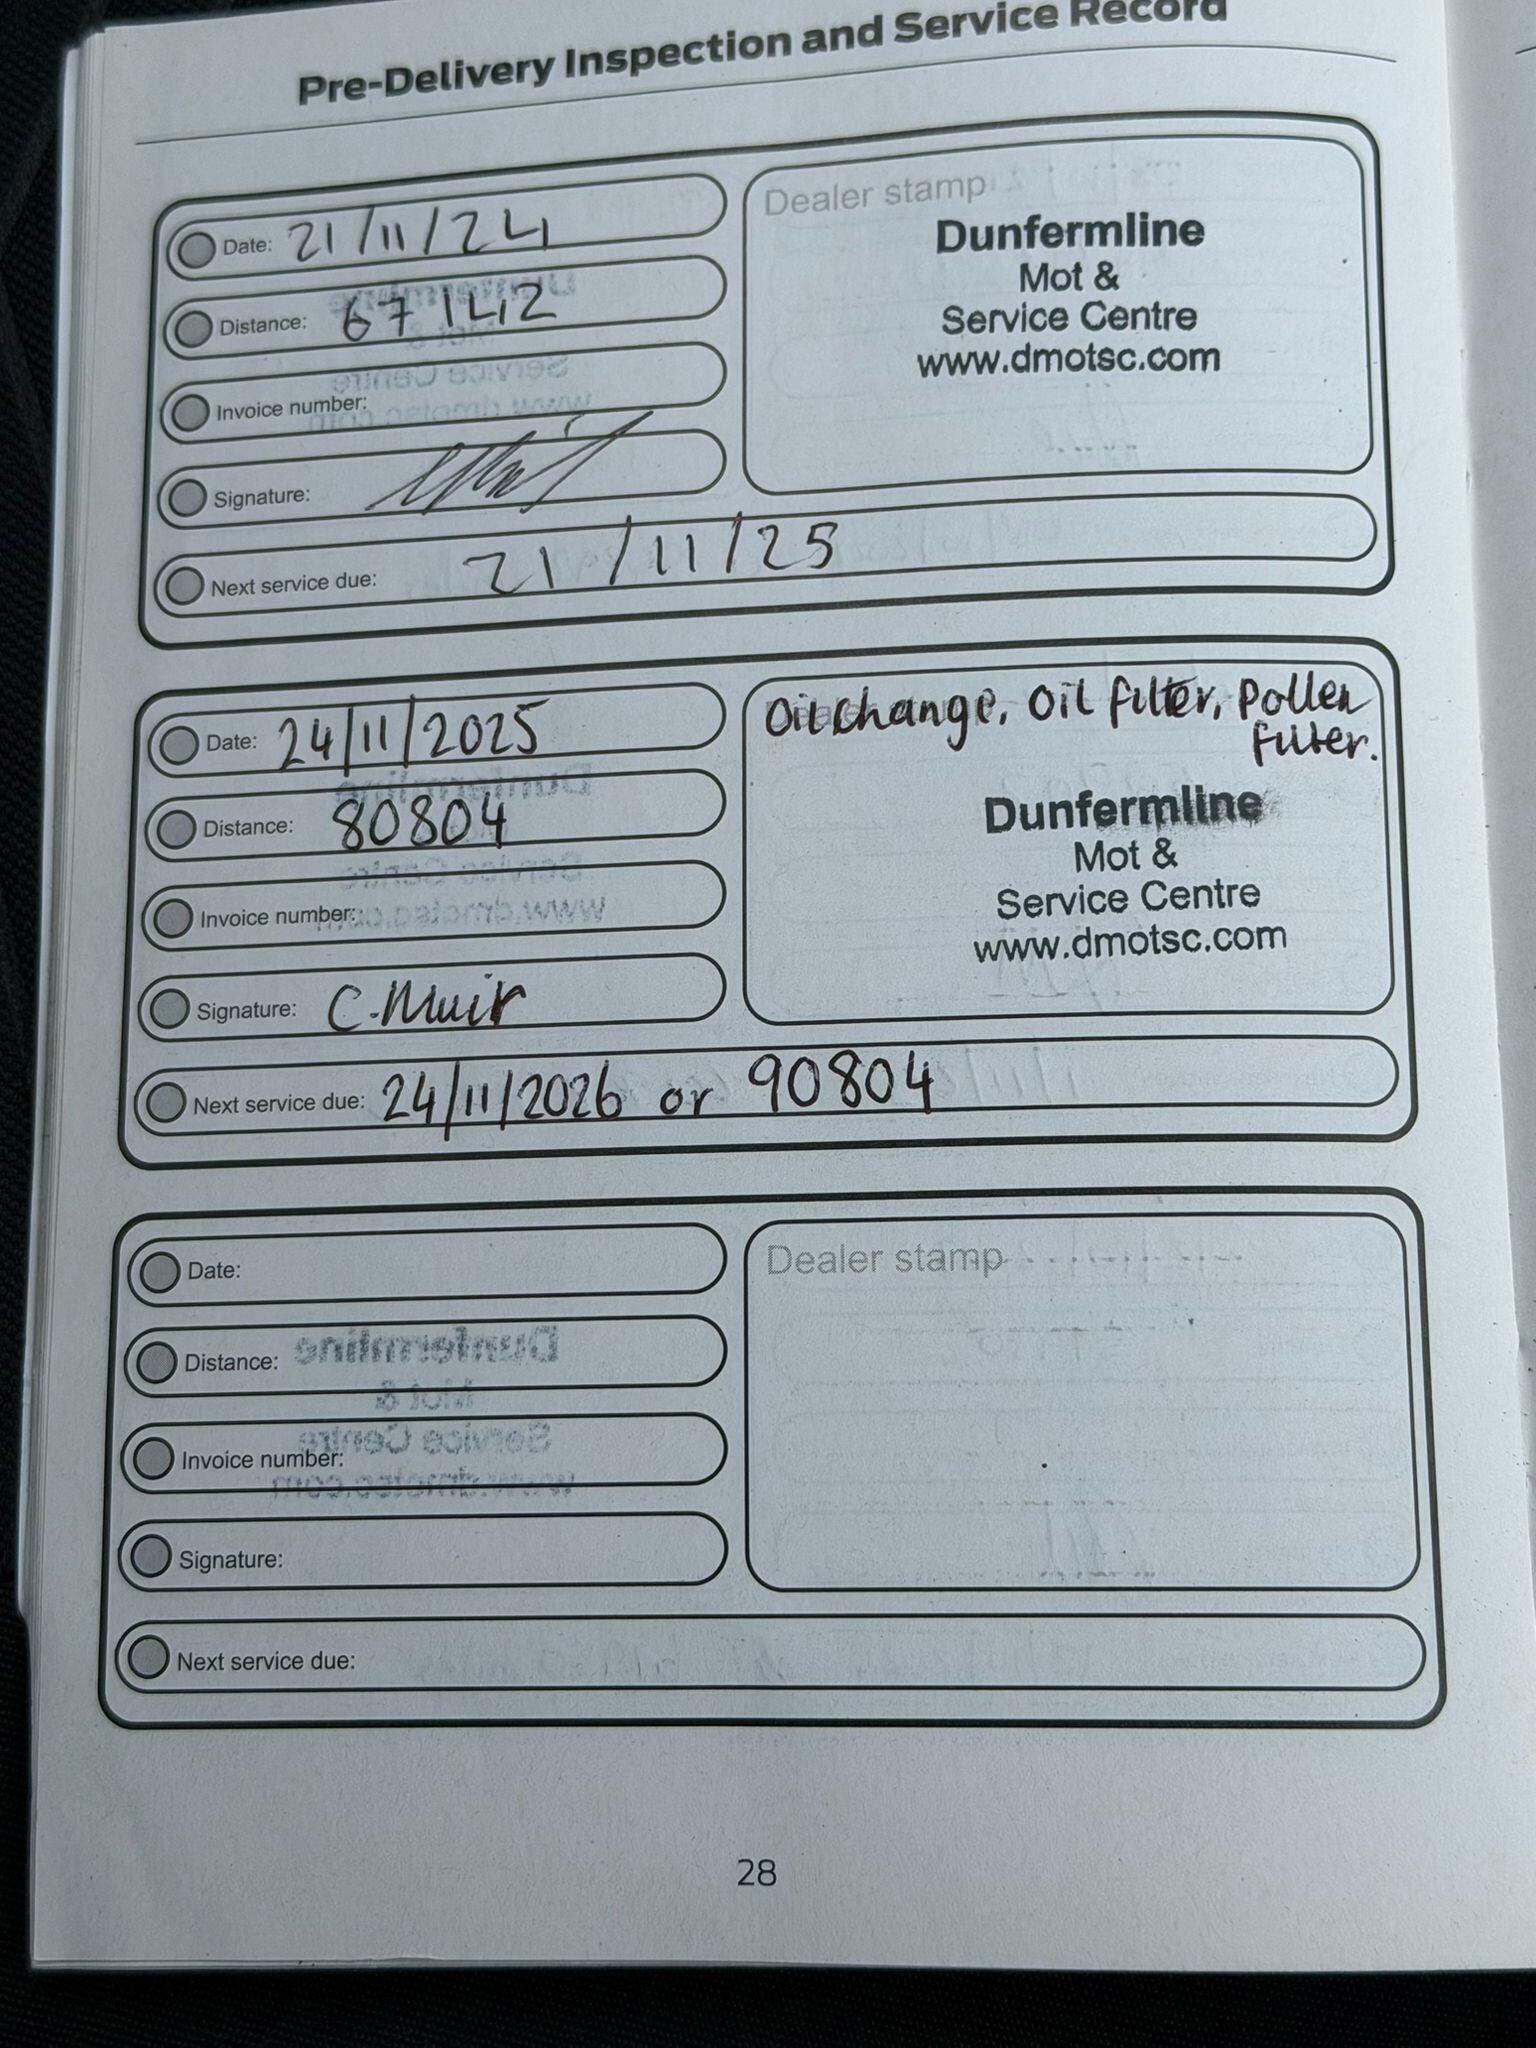 Pre-Delivery Inspection and Service Record
Date: 21/11/24
Distance: 67142
Invoice number:
Signature:
Next service due: 21/11/25
Dealer stamp
Dunfermline
Mot &
Service Centre
www.dmotsc.com
Date: 24/11/2025
Distance: 80804
Invoice number:
Signature: C.Muir
Next service due: 24/11/2026 or 90804
Oil change, Oil filter, Pollen
filter.
Dunfermline
Mot &
Service Centre
www.dmotsc.com
Date:
Distance:
Invoice number:
Signature:
Next service due:
Dealer stamp
28